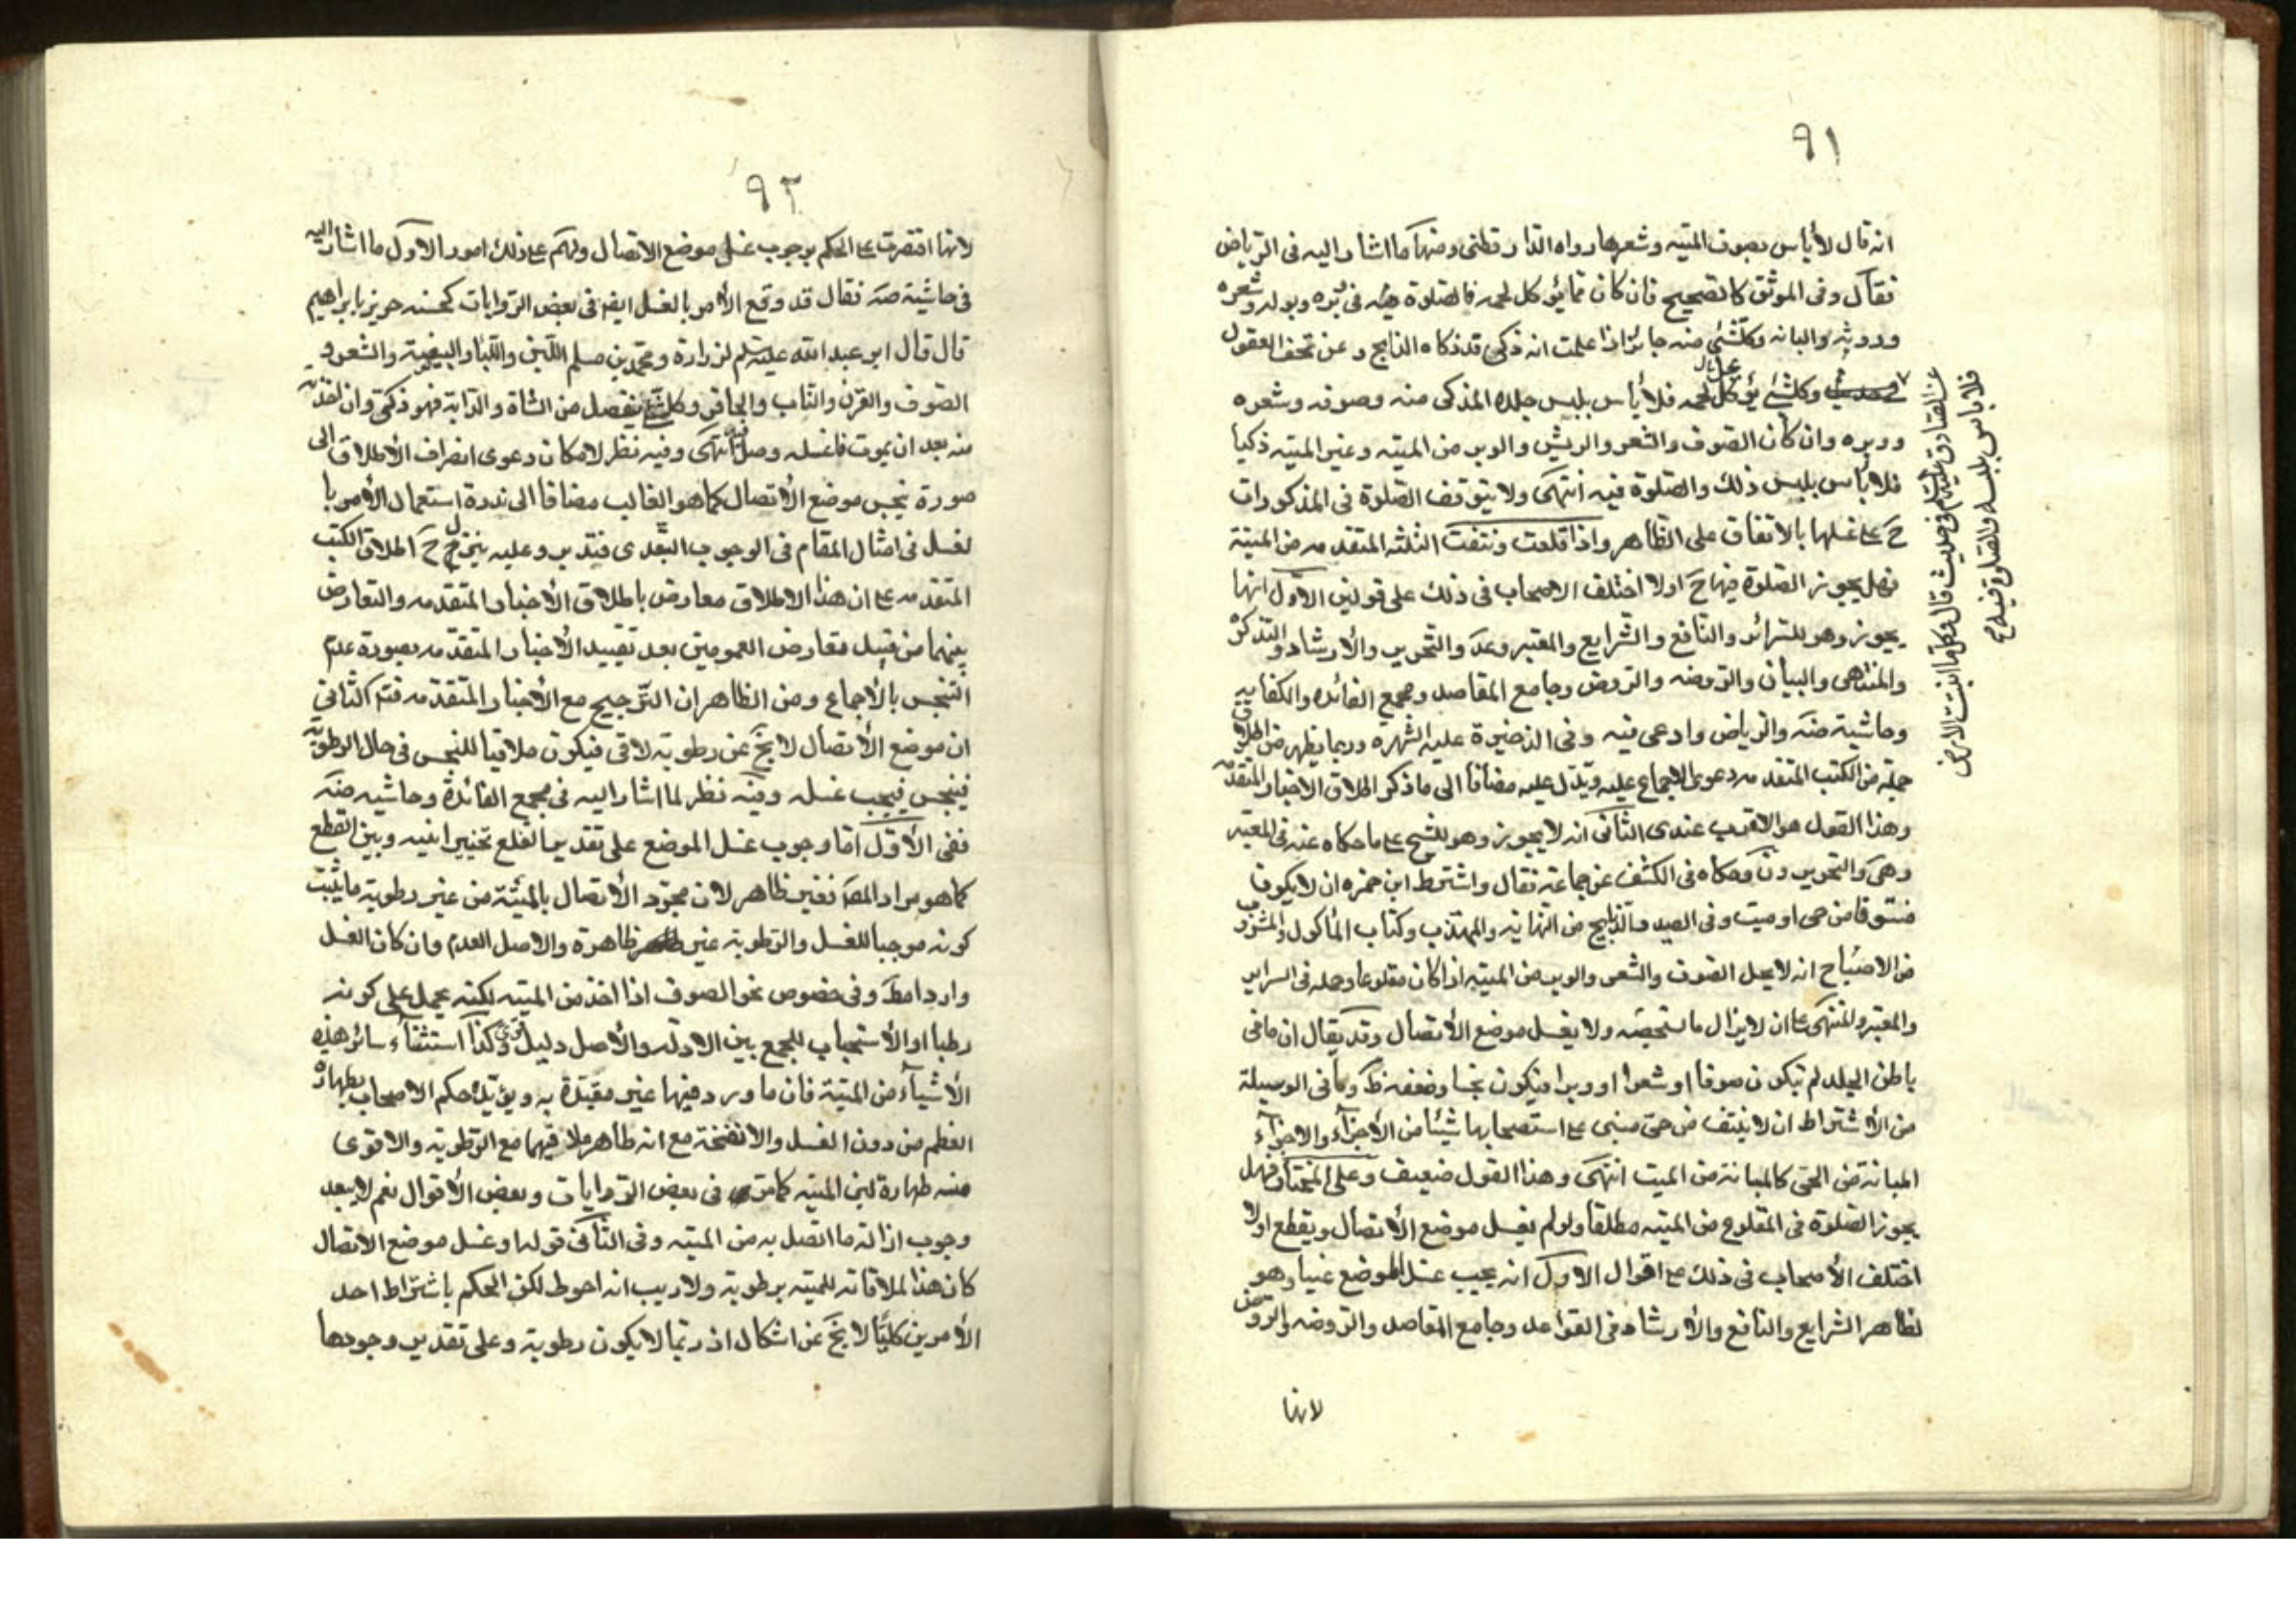 ٩١
انه قال لا بأس بصوف الميته وشعرها رواه الدار قطنى ومنها ما اشار اليه فى الرياض
فقال وفى الموثق كالصحيح فان كان مما يؤكل لحمه فالصلوة فى وبره وبوله وشعره
وروثه والبانه وكلشئ منه جائز اذا علمت انه ذكى قد ذكاه الذابح وعن تحف العقول
وكلشئ يؤكل لحمه فلا بأس بلبس جلده المذكى منه وصوفه وشعره
ووبره وان كان الصوف والشعر والريش والوبر من الميته وغير الميته ذكيا
فلا بأس بلبس ذلك والصلوة فيه انتهى ولا يتوقف الصلوة فى المذكورات
ح على غسلها بالاتفاق على الظاهر واذا قلعت ونتفت الثلثه المتقدمه من الميتة
فهل يجوز الصلوة فيها ح اولا اختلف الاصحاب فى ذلك على قولين الاول انها
يجوز وهو للسرائر والنافع والشرايع والمعتبر وعد والتحرير والارشاد والتذكرة
والمنتهى والبيان والروضه والروض وجامع المقاصد ومجمع الفائده والكفايه
وحاشية ضه والرياض وادعى فيه وفى الذخيرة عليه الشهره وربما يظهر من اطلاق
جملة من الكتب المتقدمه دعوى الاجماع عليه ويدل عليه مضافا الى ما ذكر اطلاق الاخبار المتقدمة
وهذا القول هو الاقرب عندى الثانى انه لا يجوز وهو للشيخ على ما حكاه عنه فى المعتبر
وهى والتحرير وحكاه فى الكشف عن جماعة فقال واشترط ابن حمزه ان لا يكون
منتوفا من حى او ميت وفى الصيد والذبايح من النهايه والمهذب وكتاب المأكول والمشروب
من الاصباح انه لا يحل الصوف والشعر والوبر من الميته اذا كان مقلوعا وحمله فى السراير
والمعتبر والمنتهى على ان لا يزال ما يستصحبه ولا يغسل موضع الاتصال وقد يقال ان ما فى
باطن الجلد لم يكون صوفا او شعرا او وبرا فيكون نجسا وضعفه ظ وما فى الوسيلة
من الاشتراط ان لا ينتف من حى مبنى على استصحابها شيئا من الاجزاء والاجزاء
المبانة من الحى كالمبانة من الميت انتهى وهذا القول ضعيف وعلى المختار فهل
يجوز الصلوة فى المقلوع من الميته مطلقا ولو لم يغسل موضع الاتصال ويقطع اولا
اختلف الاصحاب فى ذلك على اقوال الاول انه يجب غسل الموضع عينا وهو
لظاهر الشرايع والنافع والارشاد فى القواعد وجامع المقاصد والروضه والروض
لانها
عن الصادق عليه السلم فى حديث قال وكل ما انبتت الارض
فلا بأس بلبسه والصلوة فيه
٩٢
لانها اقتصرت على الحكم بوجوب غسل موضع الاتصال ولهم على ذلك امور الاول ما اشار اليه
فى حاشية ضه فقال قد وقع الامر بالغسل ايضا فى بعض الروايات كحسنه حريز بابراهيم
قال قال ابو عبد الله عليه السلم لزرارة ومحمد بن مسلم اللبن واللباء والبيضة والشعر و
الصوف والقرن والناب والحافر وكلشئ ينفصل من الشاة والدابة فهو ذكى وان اخذته
منه بعد ان يموت فاغسله وصل فيه انتهى وفيه نظر لامكان دعوى انصراف الاطلاق الى
صورة نجس موضع الاتصال كما هو الغالب مضافا الى ندرة استعمال الامر با
لغسل فى امثال المقام فى الوجوب التعبدى فتدبر وعليه ينزل ح اطلاق الكتب
المتقدمه على ان هذا الاطلاق معارض باطلاق الاخبار المتقدمه والتعارض
بينهما من قبيل تعارض العمومين بعد تقييد الاخبار المتقدمه بصورة عدم
التنجس بالاجماع ومن الظاهر ان الترجيح مع الاخبار المتقدمه فتم الثانى
ان موضع الاتصال لا يخ عن رطوبة لاقى فيكون ملاقيا للنجس فى حال الرطوبة
فينجس فيجب غسله وفيه نظر لما اشار اليه فى مجمع الفائدة وحاشيه ضه
ففى الاول اما وجوب غسل الموضع على تقدير القلع تخيير ابنيه وبين القطع
كما هو مراد المص فغير ظاهر لان مجرد الاتصال بالميتة من غير رطوبة ما يثبت
كونه موجبا للغسل والرطوبة غير ظاهرة والاصل العدم وان كان الغسل
واردا مط وفى خصوص نحو الصوف اذا اخذ من الميته لكنه يحمل على كونه
رطبا او الاستحباب للجمع بين الادله والاصل دليل قوى كذا استثناء سائر هذه
الاشياء من الميتة فان ما ورد فيها غير مقيدة به ويؤيده حكم الاصحاب بطهارة
العظم من دون الغسل والانفخة مع انه ظاهر ملاقيهما مع الرطوبة والاقوى
منه طهارة لبن الميته كما ترى فى بعض الروايات وبعض الاقوال نعم لا يبعد
وجوب ازالة ما اتصل به من الميته وفى الثانى قوله او غسل موضع الاتصال
كان هذا لملاقاته للميته برطوبة ولا ريب انه احوط لكن الحكم باشتراط احد
الامرين كليا لا يخ عن اشكال اذ ربما لا يكون رطوبة وعلى تقدير وجودها